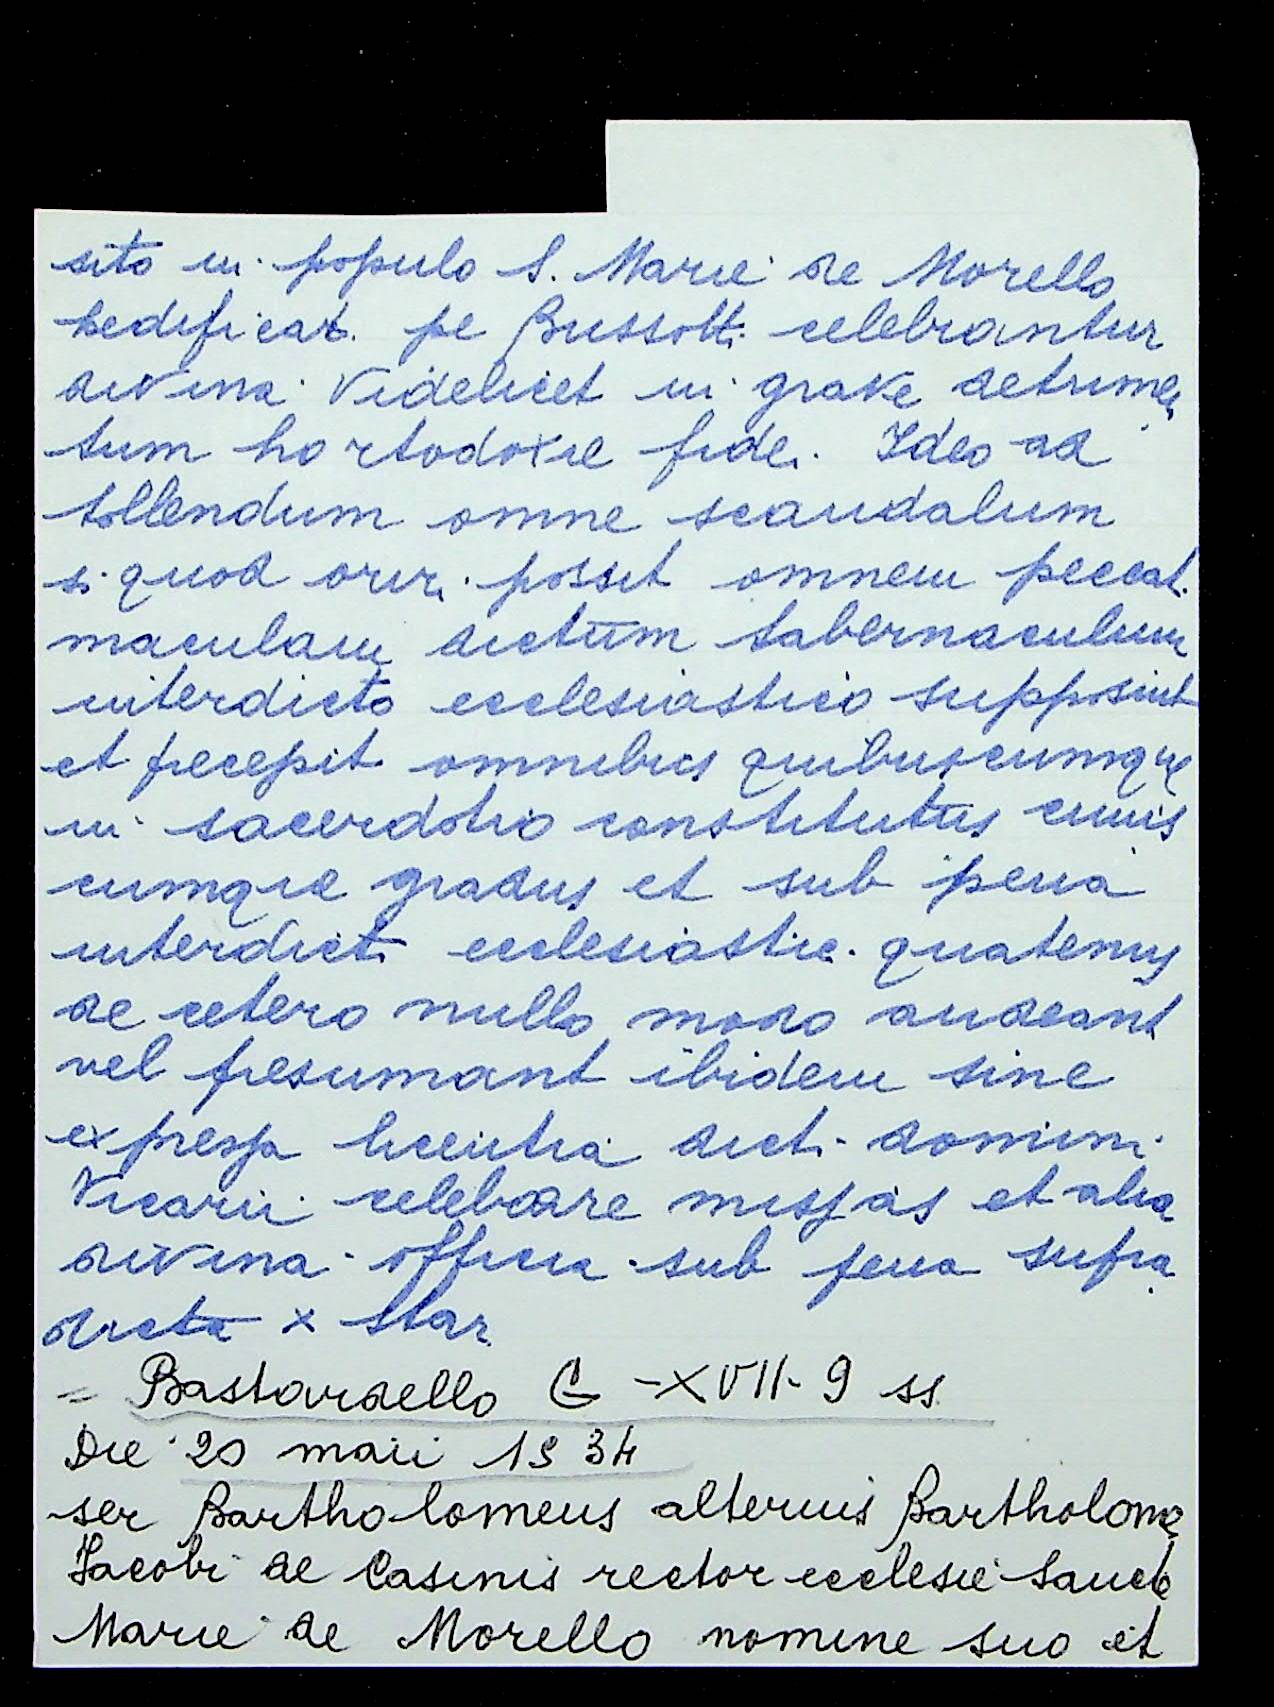 sito in populo S. Marie de Morello
hedificat. pe Bussotti celebrantur
divina videlicet in grave detrimen
tum hortodoxie fidei. Ideo ad
tollendum omne scandalum
si quod oriri possit omnem peccati
maculam dictum tabernaculum
interdicto ecclesiastico supposuit
et precepit omnibus quibuscumque
in sacerdotio constitutis cuius
cumque gradus et sub pena
interdicti ecclesiastic. quatenus
de cetero nullo modo audeant
vel presumant ibidem sine
expressa licentia dicti domini
Vicarii celebrare missas et alia
divina officia sub pena supra
dicta x star
= Bastardello G - XVII - 9 ss.
Die 20 maii 1534
ser Bartholomeus alterius Bartholomei
Jacobi de Casinis rector ecclesie Sancte
Marie de Morello nomine suo et